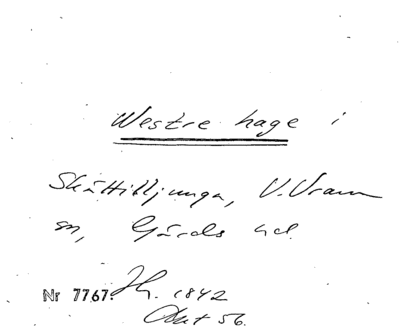 Westre hage i
Skättiljunga, V. Vram
sn, Gärds hd.
Nr 7767. Jh. 1842
Okt 56.